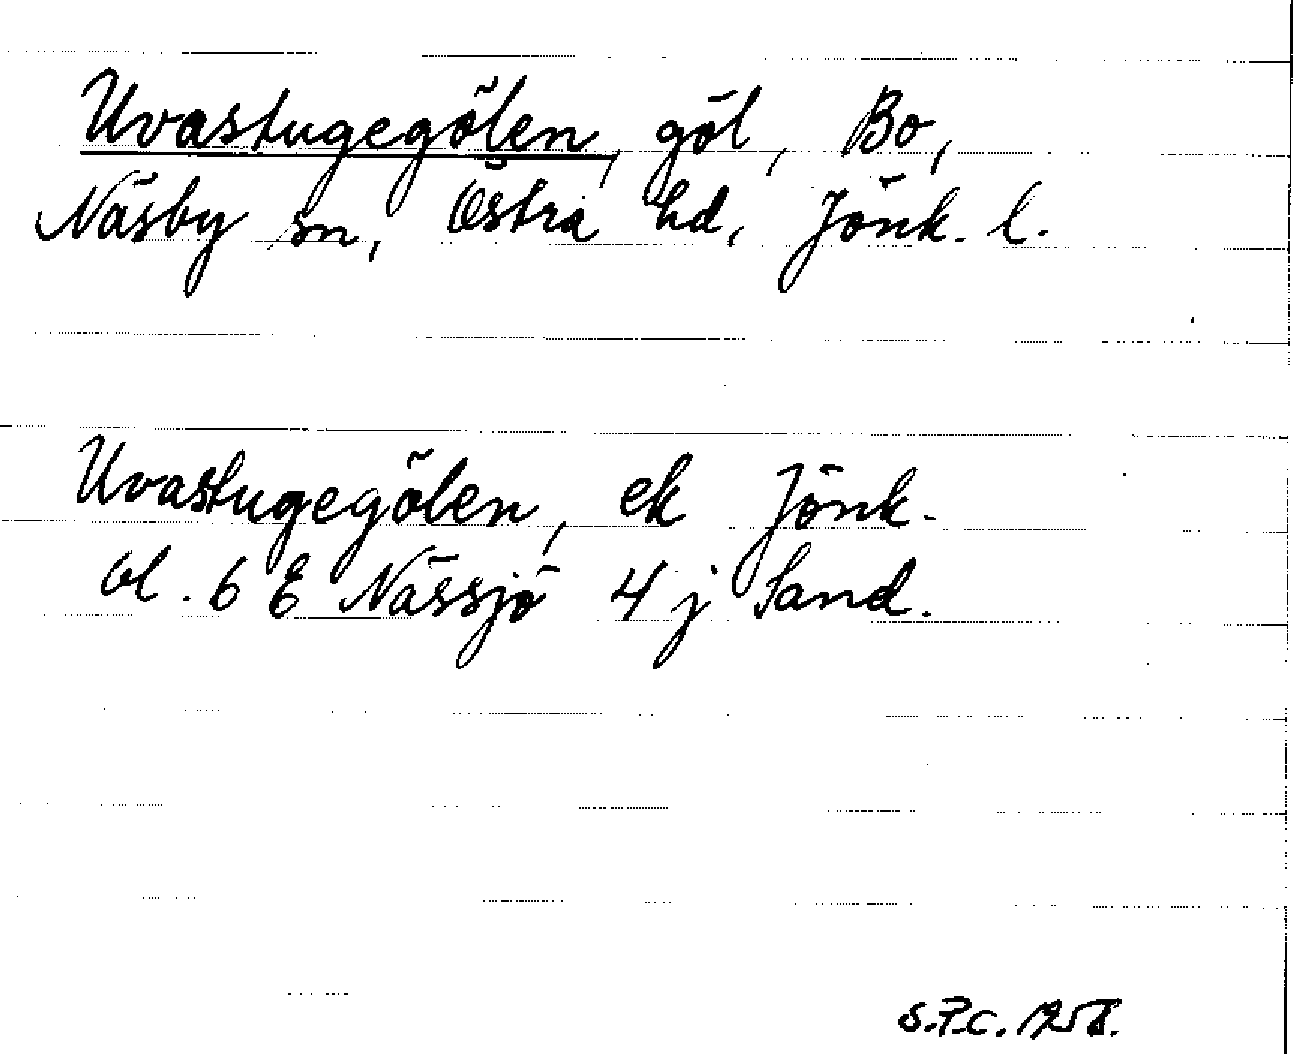 Uvastugegölen, göl, Bo,
Näsby sn, Östra hd, Jönk. l.
Uvastugegölen, ek Jönk.
bl. 6 E Nässjö 4 j Sand.
S.P.C.